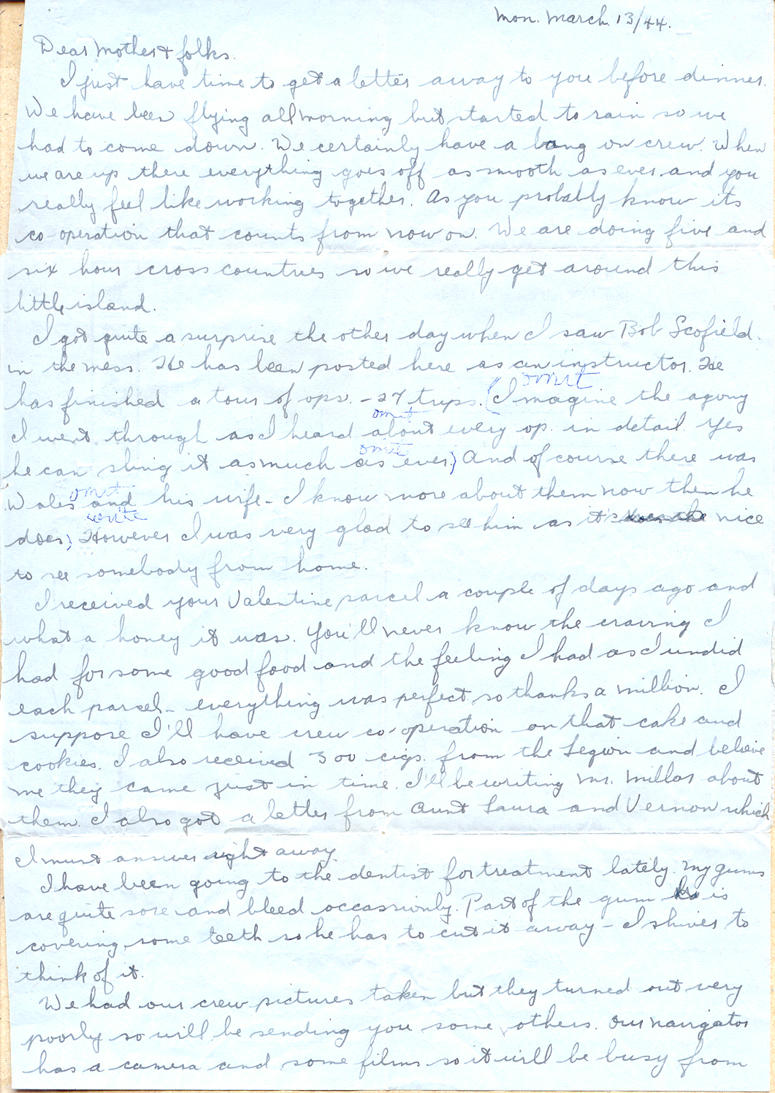 Mon. March 13/44.
Dear Mother & folks.
I just have time to get a letter away to you before dinner.
We have been flying all morning but started to rain so we
had to come down. We certainly have a bang on crew. When
we are up there everything goes off as smooth as ever and you
really feel like working together. As you probably know its
co-operation that counts from now on. We are doing five and
six hour cross countries so we really get around this
little island.
I got quite a surprise the other day when I saw Bob Scofield.
in the mess. He has been posted here as an instructor. He
omit
has finished a tour of ops. - 27 trips. (I magine the agony
omit
I went through as I heard about every op. in detail yes
omit
he can sling it as much as ever) And of course there was
omit
Wales and his wife - I know more about them now then he
does) However I was very glad to see him as it nice
to see somebody from home.
I received your Valentine parcel a couple of days ago and
what a honey it was. You'll never know the craving I
had for some good food and the feeling I had as I undid
each parcel - everything was perfect so thanks a million. I
suppose I'll have crew co-operation on that cake and
cookies. I also received 300 cigs. from the Legion and believe
me they came just in time. I'll be writing Mr. Millar about
them. I also got a letter from Aunt Laura and Vernon which
I must answer right away.
I have been going to the dentist for treatment lately. My gums
are quite sore and bleed occassionly. Part of the gum is
covering some teeth so he has to cut it away - I shiver to
think of it.
We had our crew pictures taken but they turned out very
poorly so will be sending you some others. Our navigator
has a camera and some films so it will be busy from